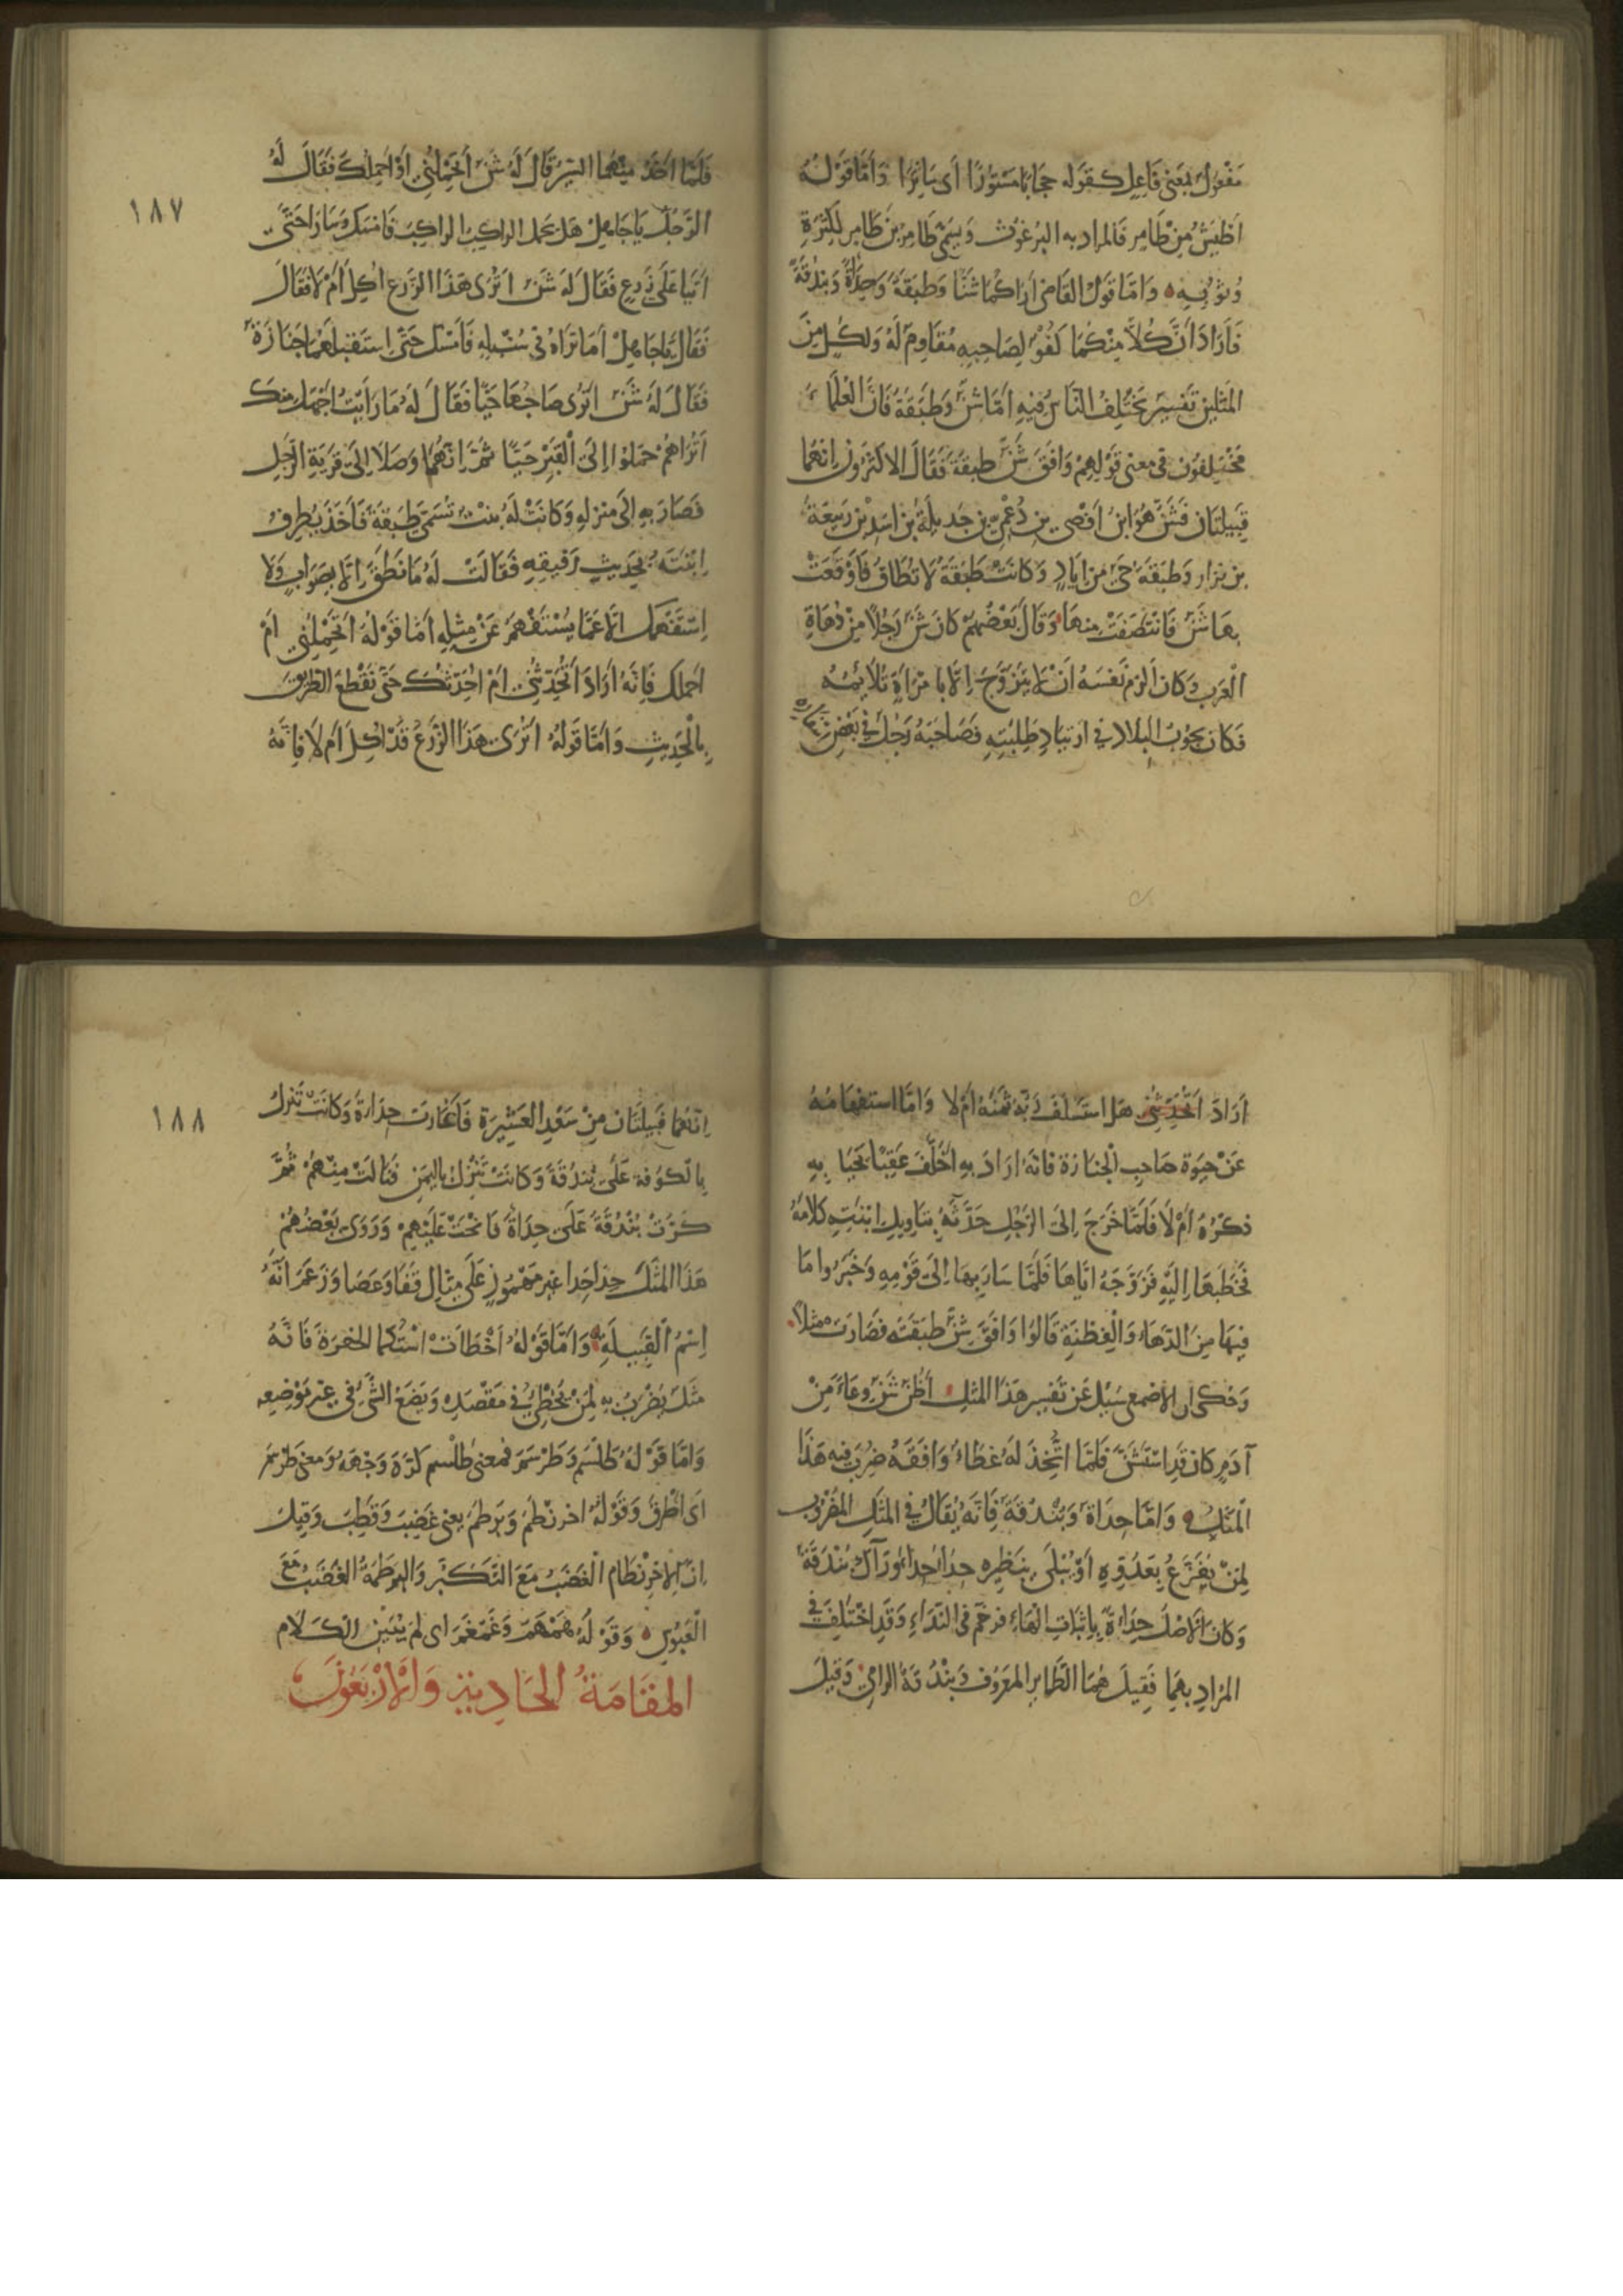 مَفْعُولٌ بمَعنى فَاعِلٍ كقَوله حجَابًا مَسْتُورًا أى سَاتِرًا وَأمَّا قَوْلُهُ
أطْيَشُ مِنْ طَامِرٍ فَالمراد به البُرغوُث وَيسَمّى طَامِرُ بن طَامِر لكثرَةِ
وُثوُبِهِ وَامّا قَولُ القَاضى أرَاكُمَا شنًّا وَطبَقَةً وَحِدَأةً وَبندُقَةً
فَأرَادَ أنَّ كُلاًّ مِنْكُمَا كُفُوٌ لِصَاحِبِهِ مُقَاوِمٌ لَهُ وَلكُلٍّ مِنَ
المَثلَينِ تَفسِيرٌ يَختَلِفُ النّاسُ فِيهِ امَّا شنٌّ وَطَبَقَةُ فَانَّ العُلَمَاءَ
مُختَلِفُون فى معنى قَولِهِمْ وَافَقَ شَنٌّ طبقَةَ فَقَالَ الاكثرُون اِنّهُمَا
قبِيلتَان فَشَنٌّ هُوَ ابنُ أفصَى بن دُعْمِىّ بنِ جَديلَة بن اسَدِ بْن ربيعَة
بن نزار وَطبقَة حَىٌّ مِن ايَادٍ وَكَانَتْ طَبَقَةُ لا تُطَاقُ فَأوْقَعَتْ
بهَا شَنٌّ فَانتَصَفتْ مِنهَا وَقَالَ بَعْضُهُمْ كانَ شَنٌّ رَجُلاً مِنْ دُهَاةِ
العَرب وَكان ألزَم نَفسَهُ أنْ لا يَتزَوَّجَ اِلَّا بامْرَأةٍ تُلَائِمُهُ
فكان يجُوبُ البِلَاد فى ارتيَادِ طِلْبَتِهِ فَصَاحَبَهُ رَجُلٌ فى بَعْضِ
فَلَمّا اخَذَ مِنهُمَا السّيْرُ قَالَ لَهُ شَنٌّ أتَحْمِلُنِى أوْ أحْمِلكَ فَقَالَ لَهُ
١٨٧
الرَّجُل يَا جَاهِلُ هَل يحمل الرَاكِبُ الرَاكِبَ فَامسَك وَسَارَا حَتّى
اتَيَا عَلَى زَرعٍ فَقَالَ لَهُ شَنٌّ اتَرى هَذَا الزَّرعَ اُكِلَ أمْ لَا فَقَالَ
فَقَالَ يَا جَاهِلُ أمَا تَرَاهُ فى سُنْبُلِهِ فَأمسَكَ حَتّى اِستَقبَلَهُمَا جَنَازَةٌ
فَقَالَ لَهُ شَنٌّ اترى صَاحِبهَا حَيًّا فَقَالَ لَهُ مَا رَأيتُ أجْهَلَ مِنكَ
أتُرَاهُمْ حَمَلوُا اِلَى الْقَبْرِ حَيًّا ثُمَّ اِنَّهُمَا وَصَلاَ اِلىَ قَريَةِ الرَّجُلِ
فَصَارَ بهِ الىَ مَنزِلهِ وَكَانَتْ لَهُ بِنتٌ تُسَمّى طَبَقَة فَأخَذَ يُطرِفُ
اِبْنَتَهُ بحَدِيثِ رَفِيقِهِ فَقَالَتْ لَهُ مَا نَطَقَ اِلَّا بِصَوَابٍ وَلَا
اِسْتَفْهَمَكَ اِلَّا عَمَّا يُسْتَفْهَمُ عَنْ مِثلِهِ أمَّا قَوْلُهُ اتَحْمِلُنِى أمْ
احملُكَ فَإِنَّهُ أرَادَ أتُحَدِّثُنِى أمْ اُحَدِّثُكَ حَتّى نَقْطعَ الطّرِيق
بِالْحَدِيثِ وَأمَّا قَولُهُ اتَرَى هَذَا الزَّرعَ قَدْ أكِلَ أم لَا فَإِنَّهُ
أرَادَ أتُحَدِّثُنِى هَل استَسْلَفَ رَبّهُ ثمنَهُ أمْ لا وَامّا استفهَامُهُ
عَنْ حَيَوةِ صَاحِبِ الْجَنازَة فَانّهُ ارَادَ بِهِ أخَلَّفَ عَقِبًا يَحيَا بِهِ
ذكْرُهُ أمْ لَا فَلَمَّا خَرَجَ اِلىَ الرّجُلِ حَدَّثَهُ بتَاوِيلِ ابنَتِهِ كلاَمَهُ
فَخَطَبَهَا اِليهِ فَزَوَّجَهُ ايّاهَا فَلَمَّا سَارَ بهَا اِلىَ قَوْمِهِ وَخَبَرُوا مَا
فِيهَا مِنَ الدّهَاءِ وَالْفِطنَةِ قَالُوا وَافَقَ شَنٌّ طَبَقَة فَصَارَت مثلاً
وَحُكى أن الاصمعى سُئِلَ عَن تَفسِير هَذا المثلِ أظُنّ شَنَّ وِعَاءً مِنْ
آدمٍ كان قَدِ اسْتَشَنَّ فَلَمّا اتُّخِذَ لَهُ غطَاءٌ وَافَقَهُ ضُرِبَ فيهِ هَذَا
الْمَثَل وَامَّا حِدَأة وَبُنْدُقَة فَاِنّهُ يُقَالُ فى المَثَلِ المَضرُوب
لِمَنْ يُفَزَّعُ بعَدُوّهِ أوْ يُبْلَى بنَظِيرهِ حِدَا حِدَا وَرَآك بُنْدُقَة
وَكَان الأصْلُ حِدَاةً بِاِثبَاتِ الهَاءِ فرخّم فى النّدَاءِ وَقَد اخْتَلفَ فى
المُرَادِ بهِمَا فَقِيلَ هُمَا الطّائِر المعرُوف وَبندُقَةُ الرّامِى وَقيلَ
اِنّهُمَا قَبيلَتَان مِنْ سَعْدِ العَشِيرَة فَأغَارَت حِدَأةُ وَكَانَتْ تَنزِلُ
١٨٨
بِالكوُفة عَلَى بُندُقَةَ وَكَانَتْ تَنزِلُ بِاليَمن فنَالَتْ مِنْهُمْ ثُمَّ
كَرَّتْ بُنْدُقَةُ عَلَى حِدَأةَ فَانْحَتْ عَلَيْهِمْ وَرَوَى بَعْضُهُمْ
هَذَا المَثَلَ حِدَا حِدَا غير مَهْمُوزٍ عَلَى مِثَالِ قَفَا وَعَصَا وَزَعَمَ انَّهُ
اِسْمُ القَبِيلَةِ وَأمَّا قَوْلهُ أخْطَأتْ اسْتُكما الحُفرَة فَانَّهُ
مَثَلٌ يُضرَبُ بهِ لِمَنْ يُخطِئُ فى مَقْصَدِهِ وَيَضَعُ الشّىْءَ فى غيْرِ مَوْضِعِهِ
وَامَّا قَوْلهُ طَلْسَم وَطَرْسَمَ فَمعنى طَلْسم كرّه وَجْهَهُ وَمعنى طَرْسَمَ
اى أطْرقَ وَقَوْلهُ اخرنْطَمَ وَبَرطَمَ يعنى غَضِبَ وَقَطَبَ وَقيلَ
اِنّ الاِخرِنْطَام الْغَضَبُ مَعَ التَكَبُّر وَالبرطَمَةُ الغَضَبُ مَعَ
الْعُبُوسِ وَقَوْلُهُ هَمْهَمَ وَغَمْغَمَ اى لم يُبَيّن الْكَلَام
المَقَامَةُ الحَادِيَة وَالأرْبَعُونَ